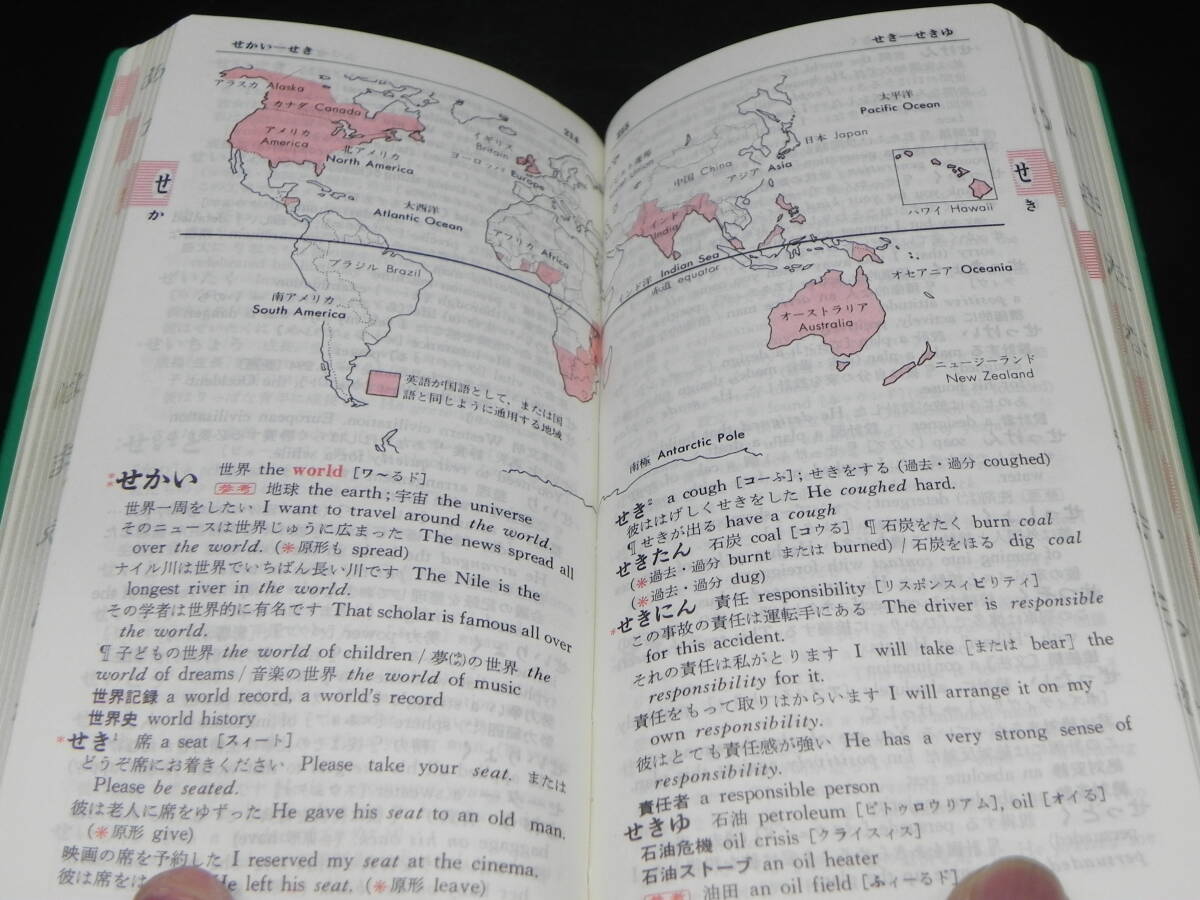 せかい―せき
アラスカ Alaska
カナダ Canada
アメリカ
America
北アメリカ
North America
イギリス
Britain
ヨーロッパ Europe
大西洋
Atlantic Ocean
アフリカ Africa
ブラジル Brazil
南アメリカ
South America
英語が国語として，または国
語と同じように通用する地域
224
せ
か
せかい 世界 the world [ワ～るド]
参考 地球 the earth；宇宙 the universe
世界一周をしたい I want to travel around the world.
そのニュースは世界じゅうに広まった The news spread all
over the world. (※原形も spread)
ナイル川は世界でいちばん長い川です The Nile is the
longest river in the world.
その学者は世界的に有名です That scholar is famous all over
the world.
¶子どもの世界 the world of children / 夢(ゆめ)の世界 the
world of dreams / 音楽の世界 the world of music
世界記録 a world record, a world's record
世界史 world history
*せき¹ 席 a seat [スィート]
どうぞ席にお着きください Please take your seat. または
Please be seated.
彼は老人に席をゆずった He gave his seat to an old man.
(※原形 give)
映画の席を予約した I reserved my seat at the cinema.
彼は席をは He left his seat. (※原形 leave)
せき―せきゆ
225
太平洋
Pacific Ocean
日本 Japan
中国 China
アジア Asia
インド
India
ハワイ Hawaii
インド洋 Indian Sea
赤道 equator
オセアニア Oceania
オーストラリア
Australia
ニュージーランド
New Zealand
南極 Antarctic Pole
せ
き
せき² a cough [コーふ]；せきをする (過去・過分 coughed)
彼ははげしくせきをした He coughed hard.
¶せきが出る have a cough
せきたん 石炭 coal [コウる] ¶石炭をたく burn coal
(※過去・過分 burnt または burned) / 石炭をほる dig coal
(※過去・過分 dug)
*せきにん 責任 responsibility [リスポンスィビリティ]
この事故の責任は運転手にある The driver is responsible
for this accident.
それの責任は私がとります I will take [または bear] the
responsibility for it.
責任をもって取りはからいます I will arrange it on my
own responsibility.
彼はとても責任感が強い He has a very strong sense of
responsibility.
責任者 a responsible person
せきゆ 石油 petroleum [ピトゥロウリアム], oil [オイる]
石油危機 oil crisis [クライスィス]
石油ストーブ an oil heater
参考 油田 an oil field [ふィーるド]